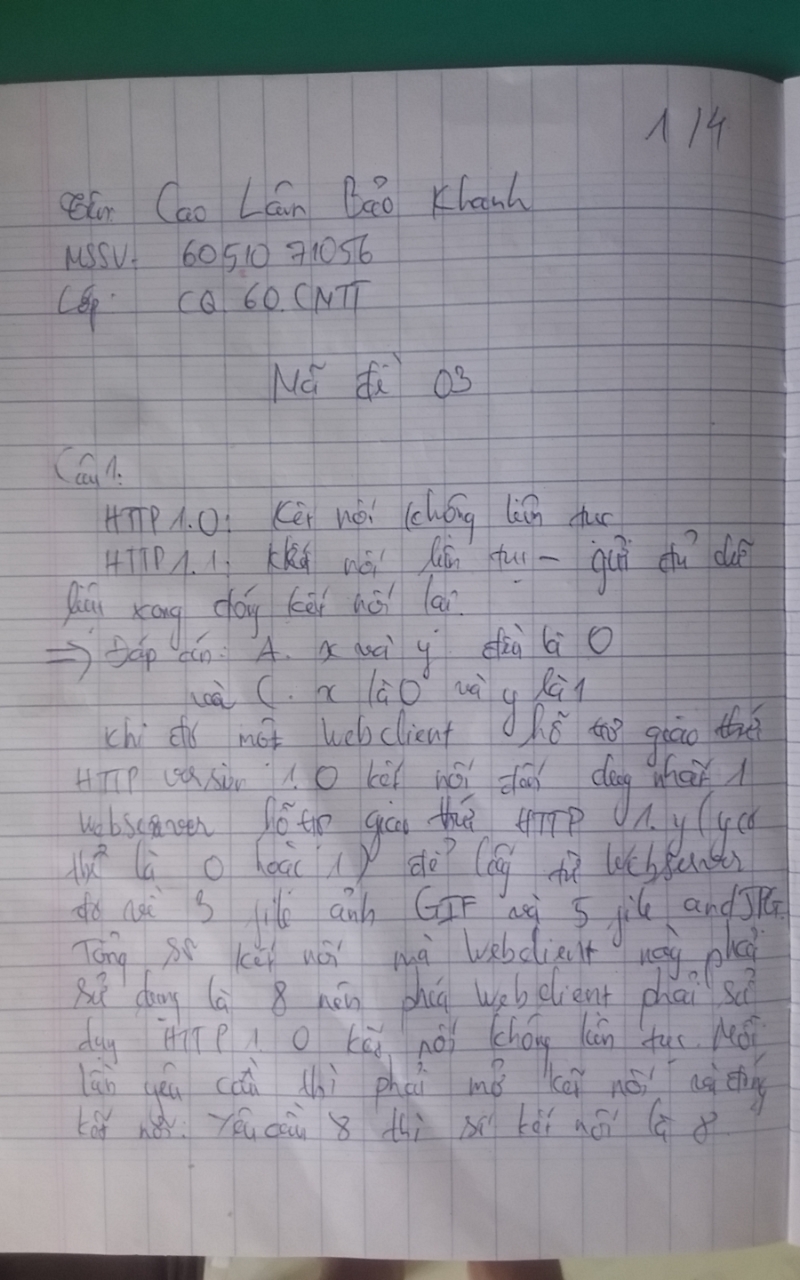 1/4
Tên: Cao Lân Bảo Khanh
MSSV: 6051071056
Lớp: CQ.60.CNTT
Mã đề 03
Câu 1:
HTTP 1.0: Kết nối không liên tục
HTTP 1.1: kết nối liên tục - gửi đủ dữ
liệu xong đóng kết nối lại.
=> Đáp án: A. x và y đều là 0
và C. x là 0 và y là 1
Khi đó một Webclient hỗ trợ giao thức
HTTP version 1.0 kết nối đến duy nhất 1
Webserver hỗ trợ giao thức HTTP 1.y (y có
thể là 0 hoặc 1) để lấy từ Webserver
đó về 3 file ảnh GIF và 5 file JPG.
Tổng số kết nối mà Webclient này phải
sử dụng là 8 nên phía Webclient phải sử
dụng HTTP 1.0 kết nối không liên tục. Mỗi
lần yêu cầu thì phải mở kết nối và đóng
kết nối. Yêu cầu 8 thì số kết nối là 8.